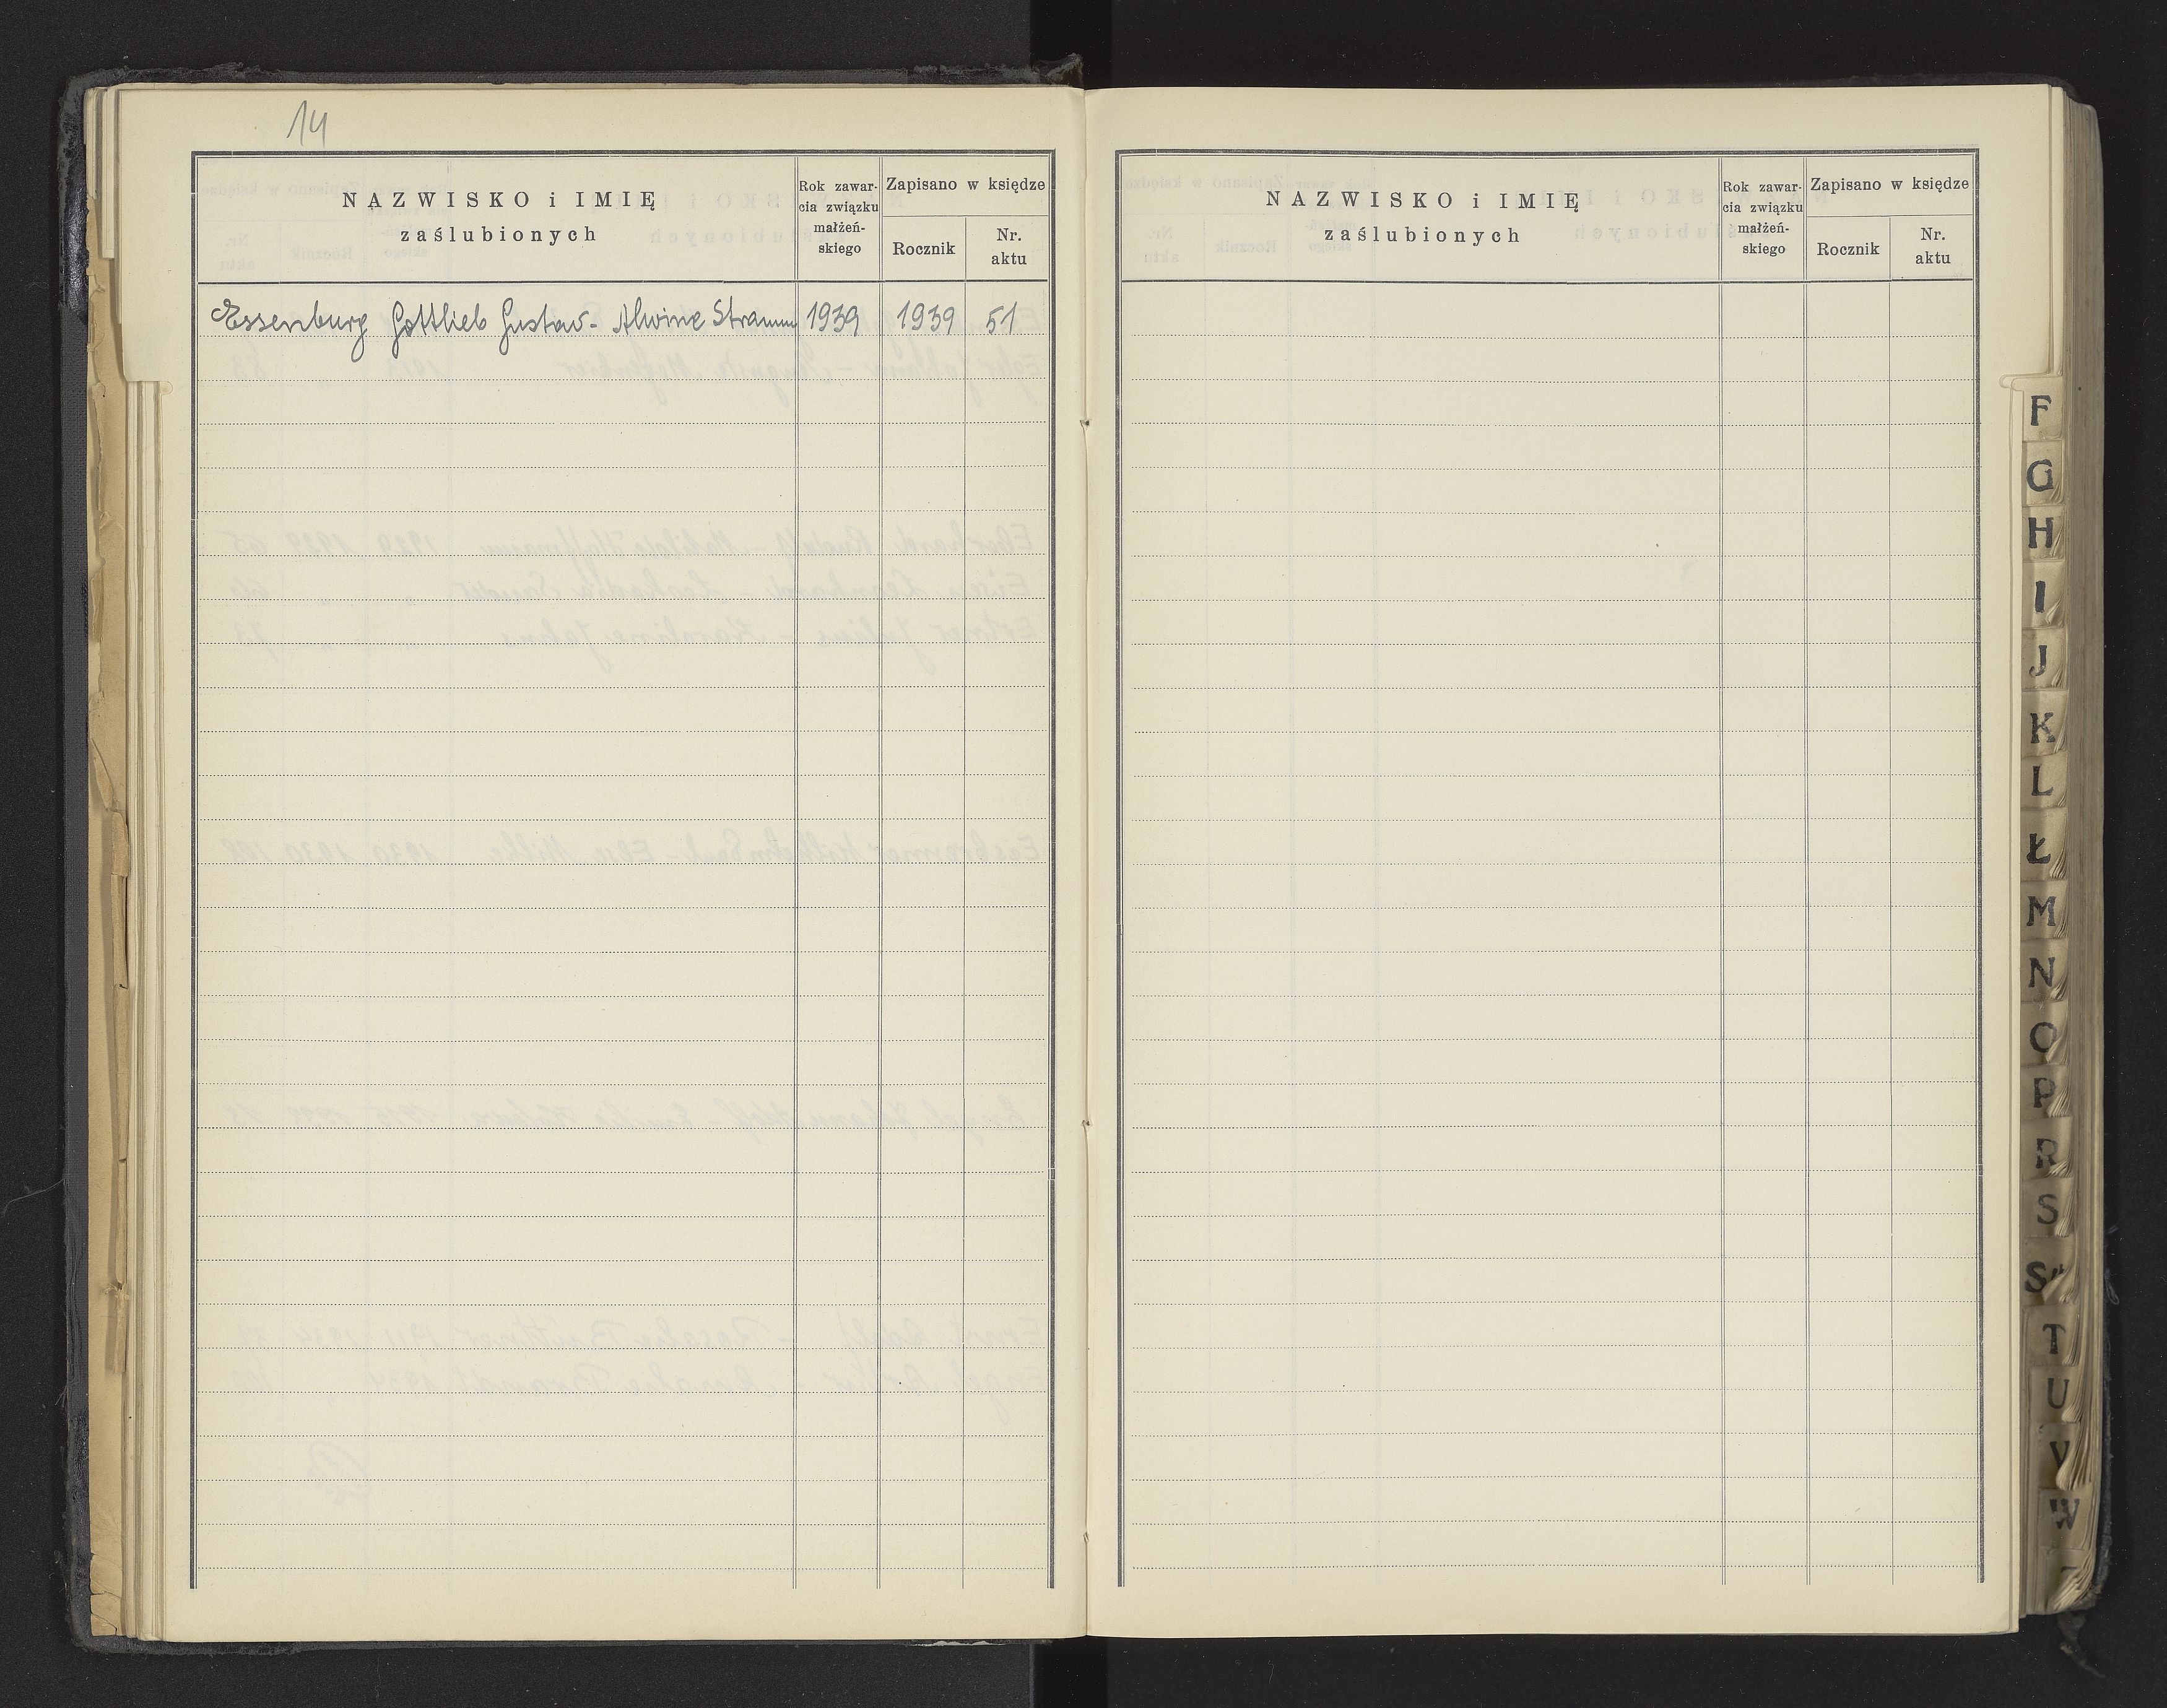 14
NAZWISKO i IMIĘ
zaślubionych
Rok zawar-
cia związku
małżeń-
skiego
Zapisano w księdze
Rocznik
Nr.
aktu
Essenburg Gottlieb Gustav - Alwine Stramm 1939 1939 51
NAZWISKO i IMIĘ
zaślubionych
Rok zawar-
cia związku
małżeń-
skiego
Zapisano w księdze
Rocznik
Nr.
aktu
F
G
H
I
J
K
L
Ł
M
N
O
P
R
S
T
U
V
W